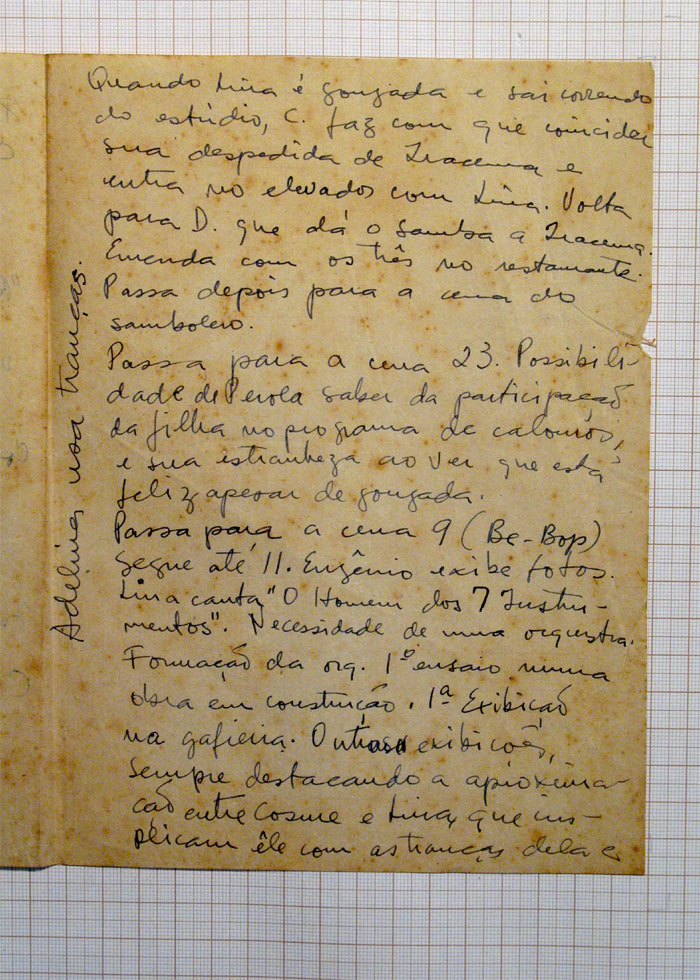 Quando Lina é gongada e sai correndo
do estúdio, C. faz com que coincidir
sua despedida de Iracema e
entra no elevador com Lina. Volta
para D. que dá o samba a Iracema.
Emenda com os três no restaurante.
Passa depois para a cena do
sambolero.
Passa para a cena 23. Possibili-
dade de Perola saber da participação
da filha no programa de calouros,
e sua estranheza ao ver que está
feliz apesar de gongada.
Passa para a cena 9 (Be-Bop)
Segue até 11. Eugênio exibe fotos.
Lina canta "O Homem dos 7 Instru-
mentos". Necessidade de uma orquestra.
Formação da orq. 1º ensaio numa
obra em construção. 1ª Exibição
na gafieira. Outras exibicoẽs,
sempre destacando a aproxima-
ção entre Cosme e Lina, que im-
plicam êle com as tranças dela e
Adelina usa tranças.